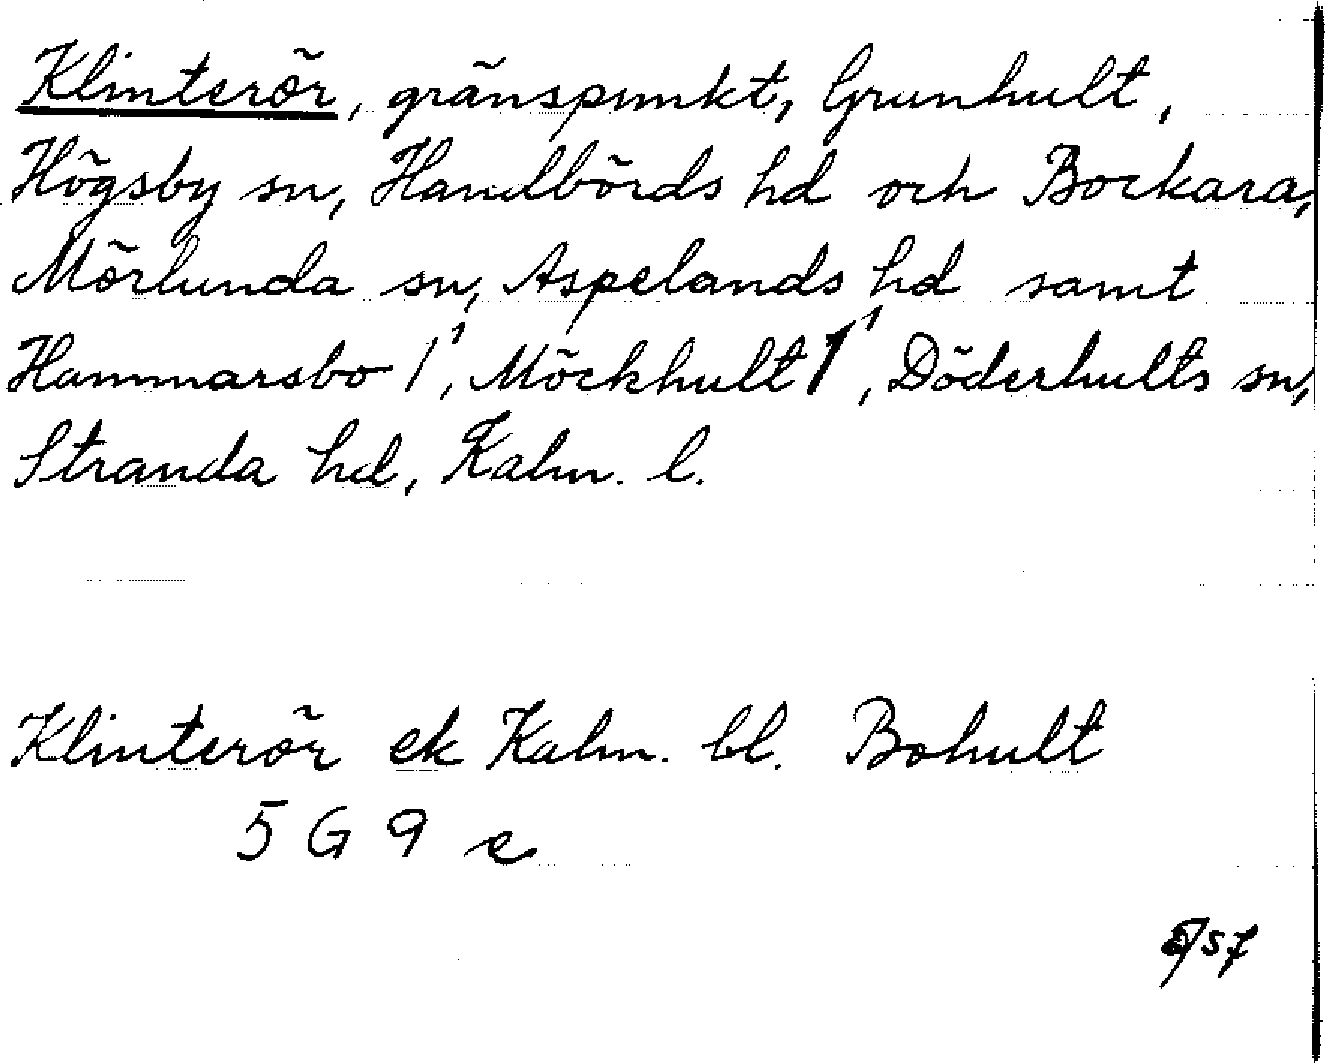 Klinterör, gränspunkt, Grunhult,
Högsby sn, Handbörds hd och Bockara,
Mörlunda sn, Aspelands hd samt
Hammarsbo 1¹, Möckhult 1¹, Döderhults sn,
Stranda hd, Kalm. l.
Klinterör ek Kalm. bl. Bohult
5 G 9 e